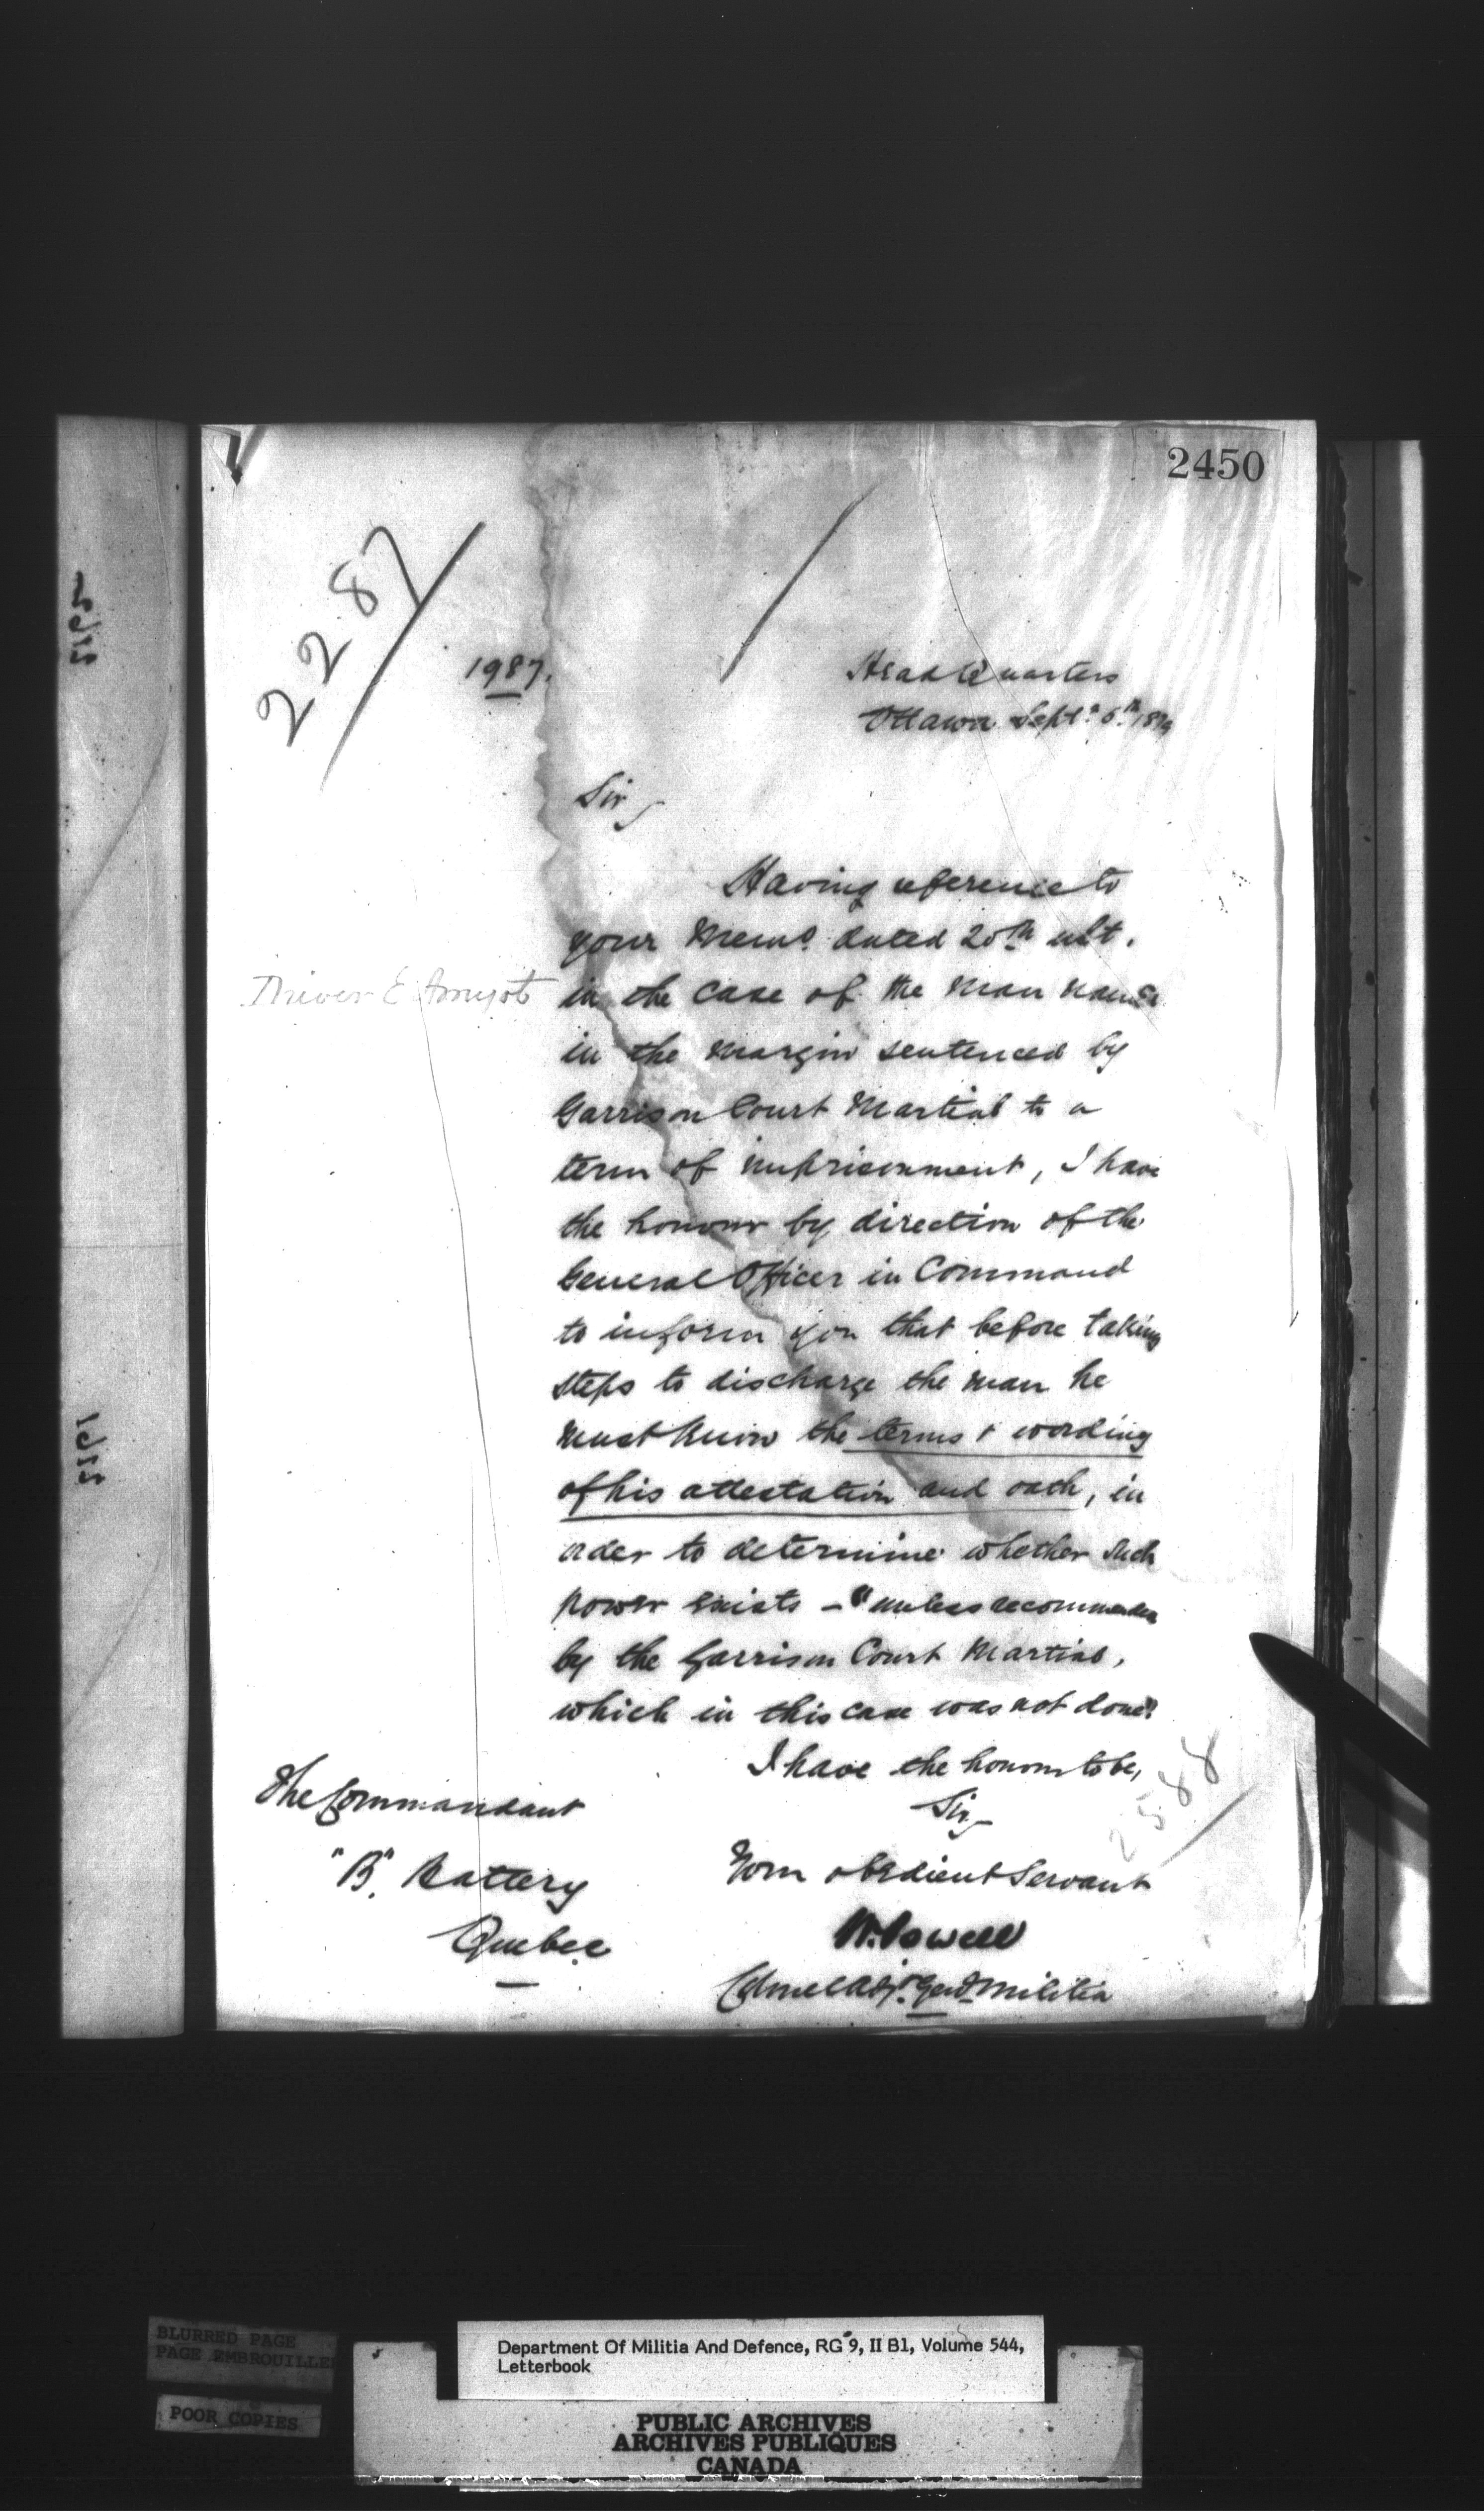 2450
2287
1987.
Head Quarters
Ottawa Sept. 6th 1879
Sir,
Having reference to
your Memo. dated 20th ult.
Driver E Amyot
in the case of the man named
in the margin sentenced by
Garrison Court Martial to a
term of imprisonment, I have
the honour by direction of the
General Officer in Command
to inform you that before taking
steps to discharge the man he
must know the terms & wording
of his attestation and oath, in
order to determine whether such
power exists - "unless recommended
by the Garrison Court Martial,
which in this case was not done"
I have the honour to be,
Sir,
2588
Your obedient Servant
W. Powell
Colonel Adjt. Genl. Militia
The Commandant
"B". Battery
Quebec
BLURRED PAGE
PAGE EMBROUILLEE
POOR COPIES
Department Of Militia And Defence, RG 9, II B1, Volume 544,
Letterbook
PUBLIC ARCHIVES
ARCHIVES PUBLIQUES
CANADA